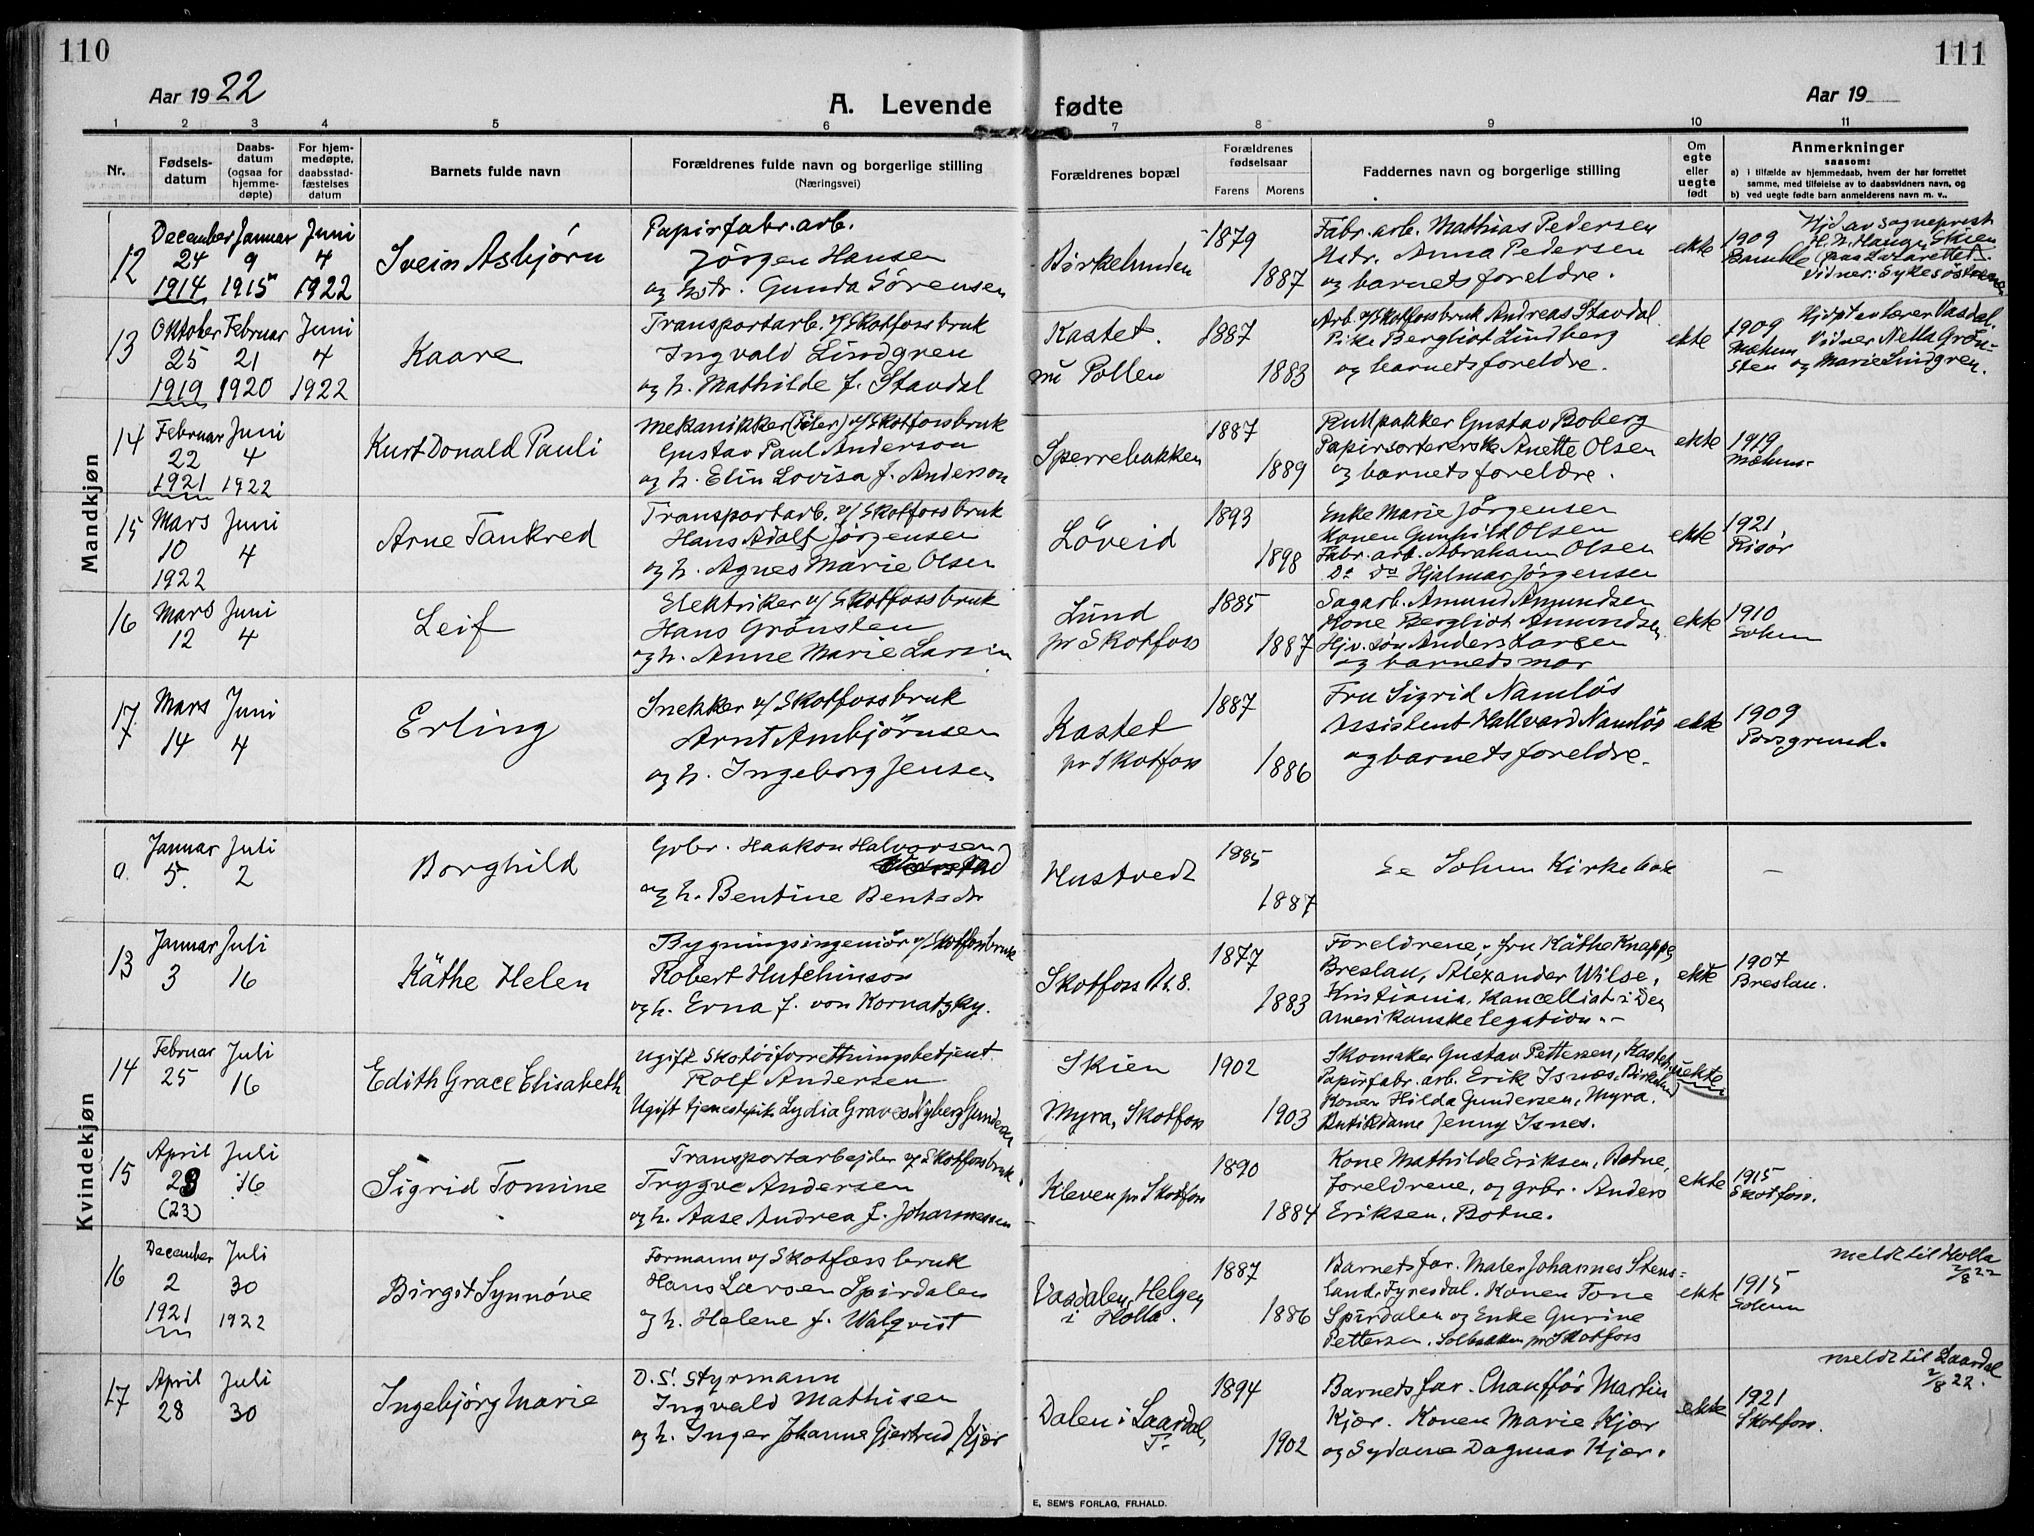 110
111
Aar 1922
A. Levende fødte
Aar 19
1 2 3 4 5 6 7 8 9 10 11
Nr.
Fødselsdatum
Daabsdatum (ogsaa for hjemmedøpte)
For hjemmedøpte, daabsstadfæstelses datum
Barnets fulde navn
Forældrenes fulde navn og borgerlige stilling
(Næringsvei)
Forældrenes bopæl
Forældrenes fødselsaar
Farens Morens
Faddernes navn og borgerlige stilling
Om egte eller uegte født
Anmerkninger
saasom:
a) i tilfælde av hjemmedaab, hvem der har forrettet samme, med tilføielse av to daabsvidners navn, og
b) ved uegte fødte barn anmelderens navn m. v..
Mandkjøn
12
December 24 1914
Januar 9 1915
Juni 4 1922
Svein Asbjørn
Papirfabr. arb.
Jørgen Hansen
og hstr. Gunda Sørensen
Birkelunden
1879
1887
Fabr. arb. Mathias Pedersen
Hstr. Anna Pedersen
og barnets foreldre.
ekte
1909
Bamble
Hjd av sogneprest
H. N. Hauge, Skien
(paa Lazarettet).
Vidner: Sykesøstrene
13
Oktober 25 1919
Februar 21 1920
Juni 4 1922
Kaare
Transportarb. v/ Skotfossbruk
Ingvald Lindgren
og h. Mathilde f. Stavdal
Kastet.
nu Pollen
1887
1883
Arb. v/ Skotfossbruk Andreas Stavdal
Pike Bergliot Lindberg
og barnets foreldre.
ekte
1909
Melum
Hjdøpt av lærer Vasdal.
Vidner Nella Grønsten
og Marie Lindgren.
14
Februar 22 1921
Juni 4 1922
Kurt Donald Pauli
Mekanikker (Filer) v/ Skotfossbruk
Gustav Paul Anderson
og h. Elin Lovisa f. Anderson
Sperrebakken
1887
1889
Rullpakker Gustav Boberg
Papirsortererske Anette Olsen
og barnets foreldre.
ekte
1919
Melum.
15
Mars 10 1922
Juni 4
Arne Tankred
Transportarb. v/ Skotfossbruk
Hans Adolf Jørgensen
og h. Agnes Marie Olsen
Løveid
1893
1898
Enke Marie Jørgensen
Konen Gunhild Olsen
Fabr. arb. Abraham Olsen
Do do Hjalmar Jørgensen
ekte
1921
Risør
16
Mars 12
Juni 4
Leif
Elektriker v/ Skotfossbruk
Hans Grønsten
og h. Anne Marie Larsen
Lund
pr Skotfoss
1885
1887
Sagarb. Amund Amundsen
Kone Bergliot Amundsen
Hjv. søn Anders Larsen
og barnets mor
ekte
1910
Solum
17
Mars 14
Juni 4
Erling
Snekker v/ Skotfossbruk
Arnt Ambjørnsen
og h. Ingeborg Jensen
Kastet
pr Skotfoss
1887
1886
Fru Sigrid Namløs
Assistent Hallvard Namløs
og barnets foreldre.
ekte
1909
Porsgrund.
Kvindekjøn
a.
Januar 5.
Juli 2
Borghild
Grbr. Haakon Halvorsen
og h. Bentine Bentsdr
Hustvedt
1885
1887
Se Solum Kirkebok
—
13
Januar 3
Juli 16
Käthe Helen
Bygningsingeniør v/ Skotfossbruk
Robert Hutchinson
og h. Erna f. von Kornatzky.
Skotfoss
1877
1883
Foreldrene, fru Käthe Knappe
Breslau, Alexander Wilse,
Kristiania, Kancellist i Den
Amerikanske legation.
ekte
1907
Breslau.
14
Februar 25
Juli 16
Edith Grace Elisabeth
Ugift Skotøiforretningsbetjent
Rolf Andersen
Ugift tjenestepike Lydia Graves Nyberg Gundersen
Skien
Myra, Skotfoss
1902
1903
Skomaker Gustav Pettersen, Kastet
Papirfabr. arb. Erik Isnes, Birkelund
Konen Hilda Gundersen, Myra.
Butikdame Jenny Isnes.
uekte
15
April 23 (23)
Juli 16
Sigrid Tomine
Transportarbejder v/ Skotfossbruk
Trygve Andersen
og h. Aase Andrea f. Johannessen
Kleven pr Skotfoss
1890
1884
Kone Mathilde Eriksen, Botne,
foreldrene, og grbr. Anders
Eriksen, Botne.
ekte
1915
Skotfoss.
16
December 2 1921
Juli 30 1922
Birgit Synnøve
Formann v/ Skotfossbruk
Hans Larsen Spirdalen
og h. Helene f. Walqvist
Vasdalen, Helgen
i Holla.
1887
1886
Barnets far. Maler Johannes Stensland,
Fyresdal. Konen Tone
Spirdalen og Enke Gurine
Pettersen. Solbakken pr Skotfoss
ekte
1915
Solum
meldt til Holla
2/8 22
17
April 28
Juli 30
Ingebjørg Marie
D. S. Styrmann
Ingvald Mathisen
og h. Inger Johanne Gjertrud f. Kjær
Dalen i Laardal,
T.
1894
1902
Barnets far. Chauffør Martin
Kjær. Konen Marie Kjær
og Sydame Dagmar Kjær.
ekte
1921
Skotfoss.
meldt til Laardal
2/8 22.
E, SEM'S FORLAG, FR.HALD.